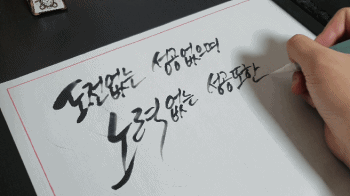 도전없는 성공없으며
노력없는 성공또한